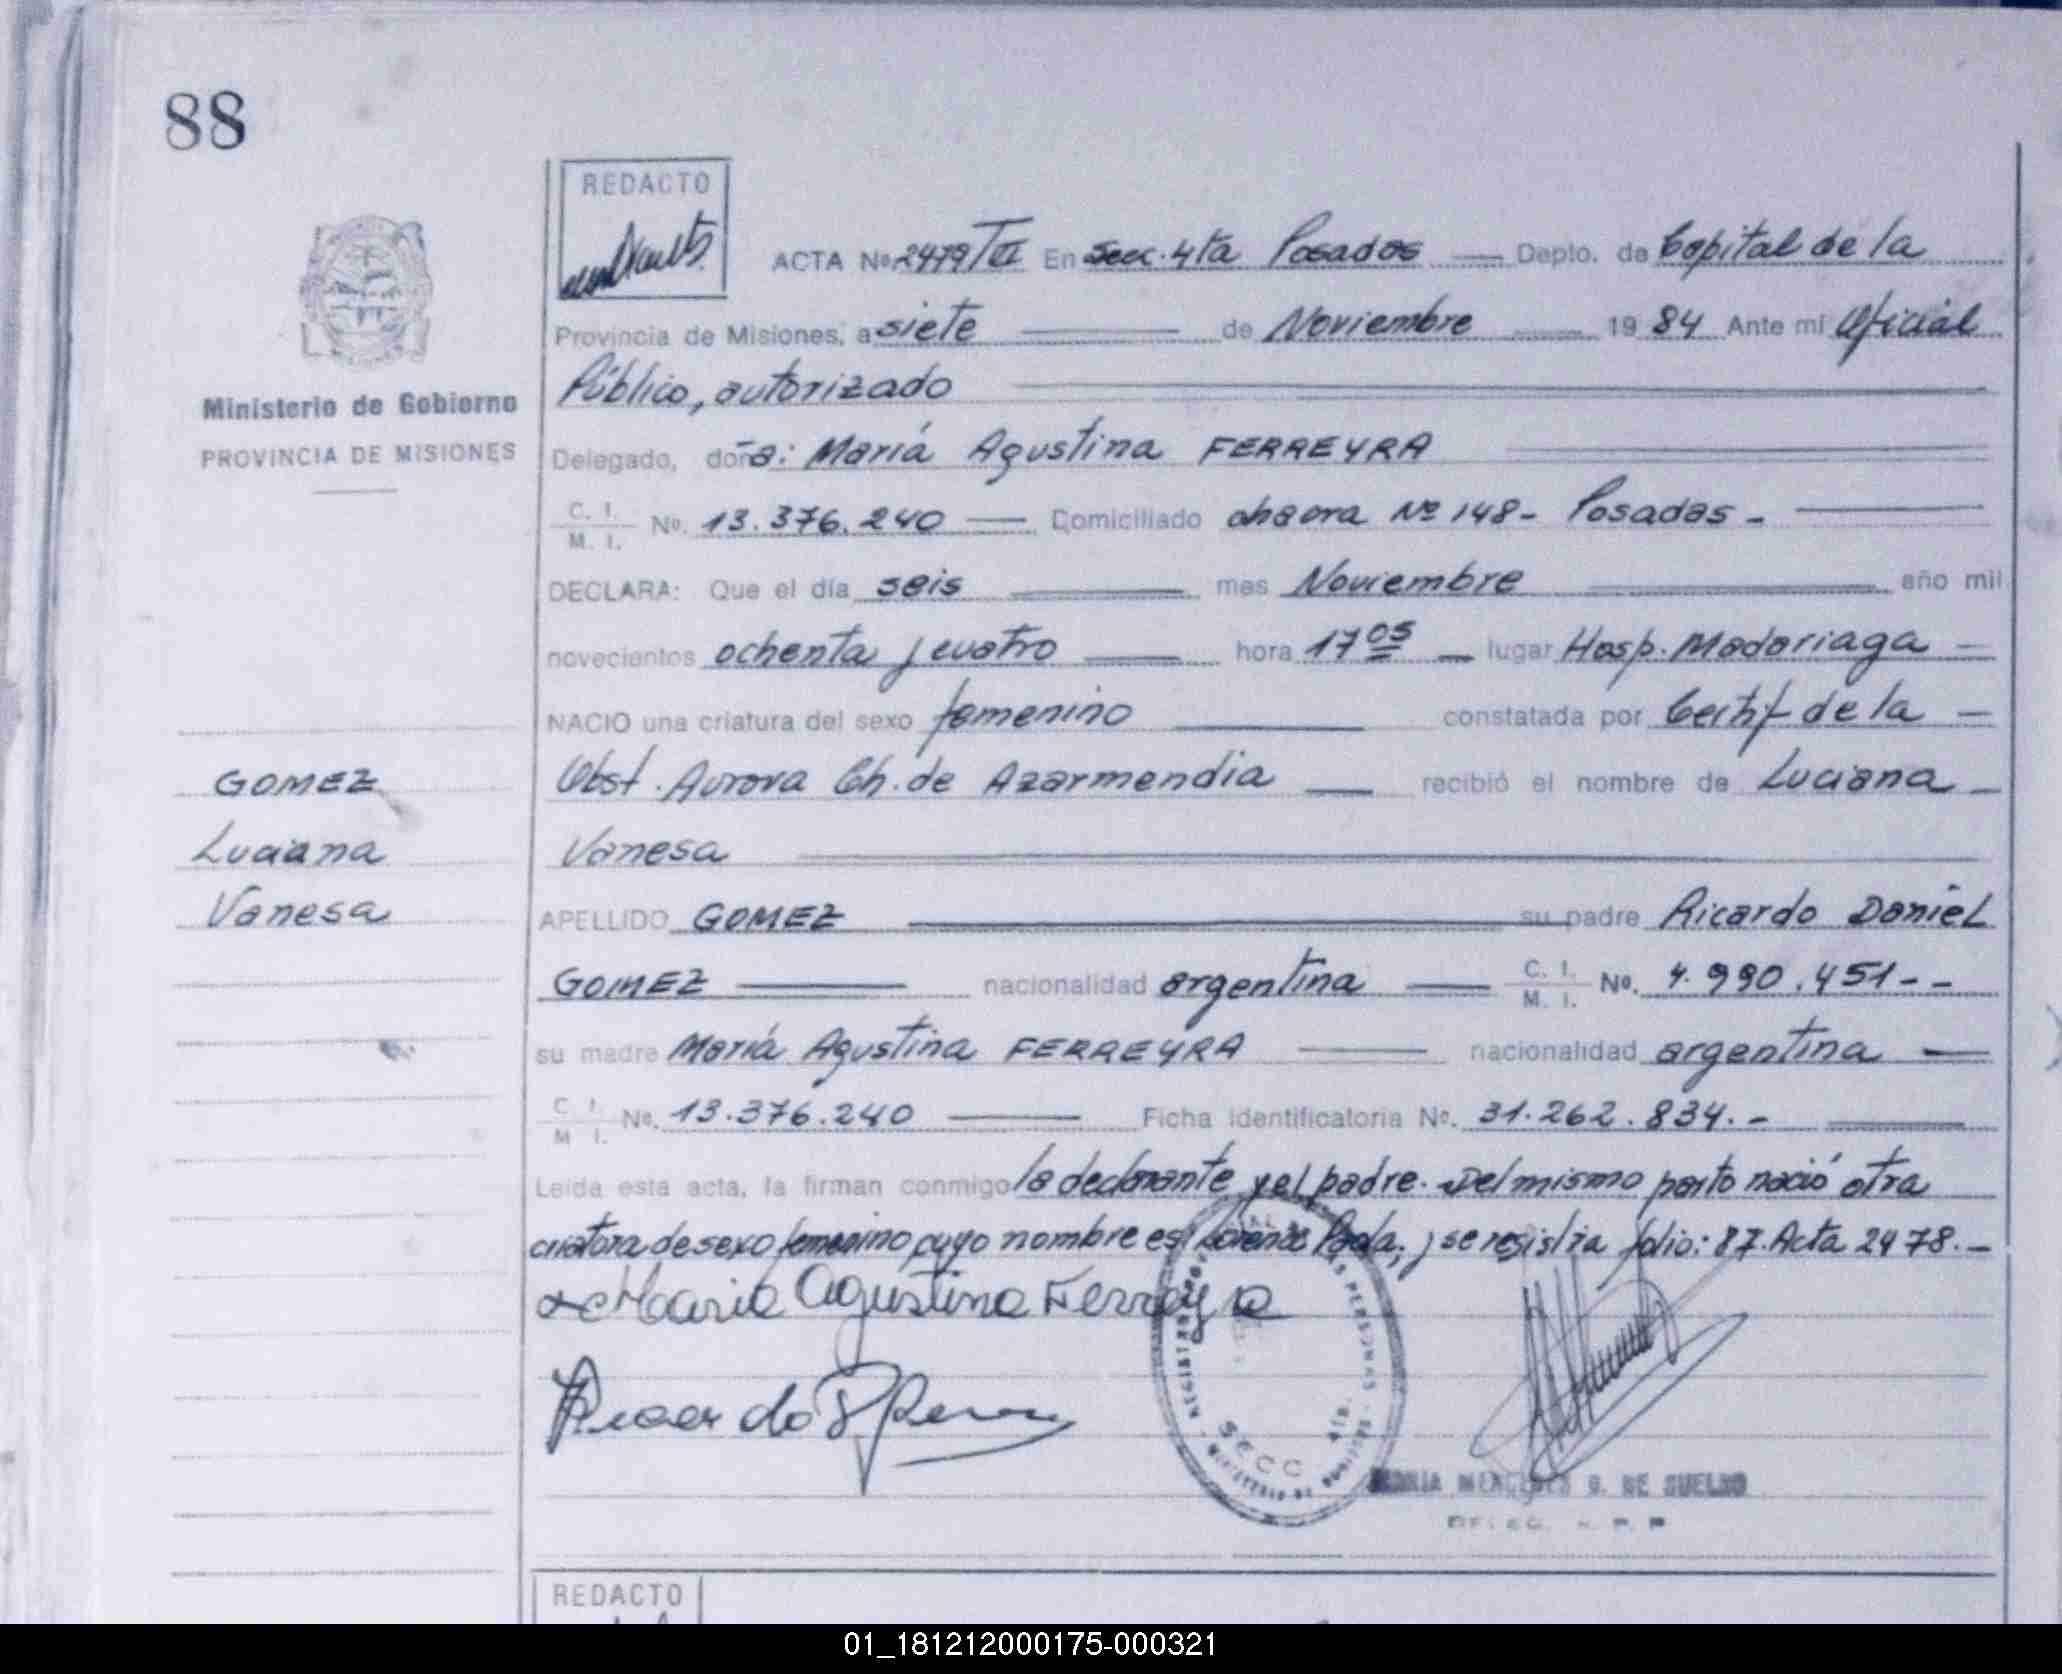 88
REDACTO
ACTA Nº 2479/VI En Secc. 4ta Posadas Depto. de Capital de la
Provincia de Misiones, a siete de Noviembre 1984 Ante mí Oficial
Público, autorizado
Ministerio de Gobierno
PROVINCIA DE MISIONES
Delegado, doña: María Agustina FERREYRA
C. I.
M. I. No. 13.376.240 Domiciliado chacra Nº 148 - Posadas -
DECLARA: Que el día seis mes Noviembre año mil
novecientos ochenta y cuatro hora 17 05 lugar Hosp. Madariaga
NACIO una criatura del sexo femenino constatada por Certif de la
Obst. Aurora Ch. de Azarmendia recibió el nombre de Luciana
Vanesa
GOMEZ
Luciana
Vanesa
APELLIDO GOMEZ su padre Ricardo Daniel
GOMEZ nacionalidad argentina C. I.
M. I. No. 7.990.451 - -
su madre María Agustina FERREYRA nacionalidad argentina
C. I.
M. I. No. 13.376.240 Ficha Identificatoria No. 31.262.834. -
Leída esta acta, la firman conmigo la declarante y el padre. Del mismo parto nació otra
criatura de sexo femenino cuyo nombre es: Paola, y se registra folio: 87. Acta 2478. -
Maria Agustina Ferreyra
Ricardo
SECC 4ta.
DE SUELDO
REDACTO
01_181212000175-000321